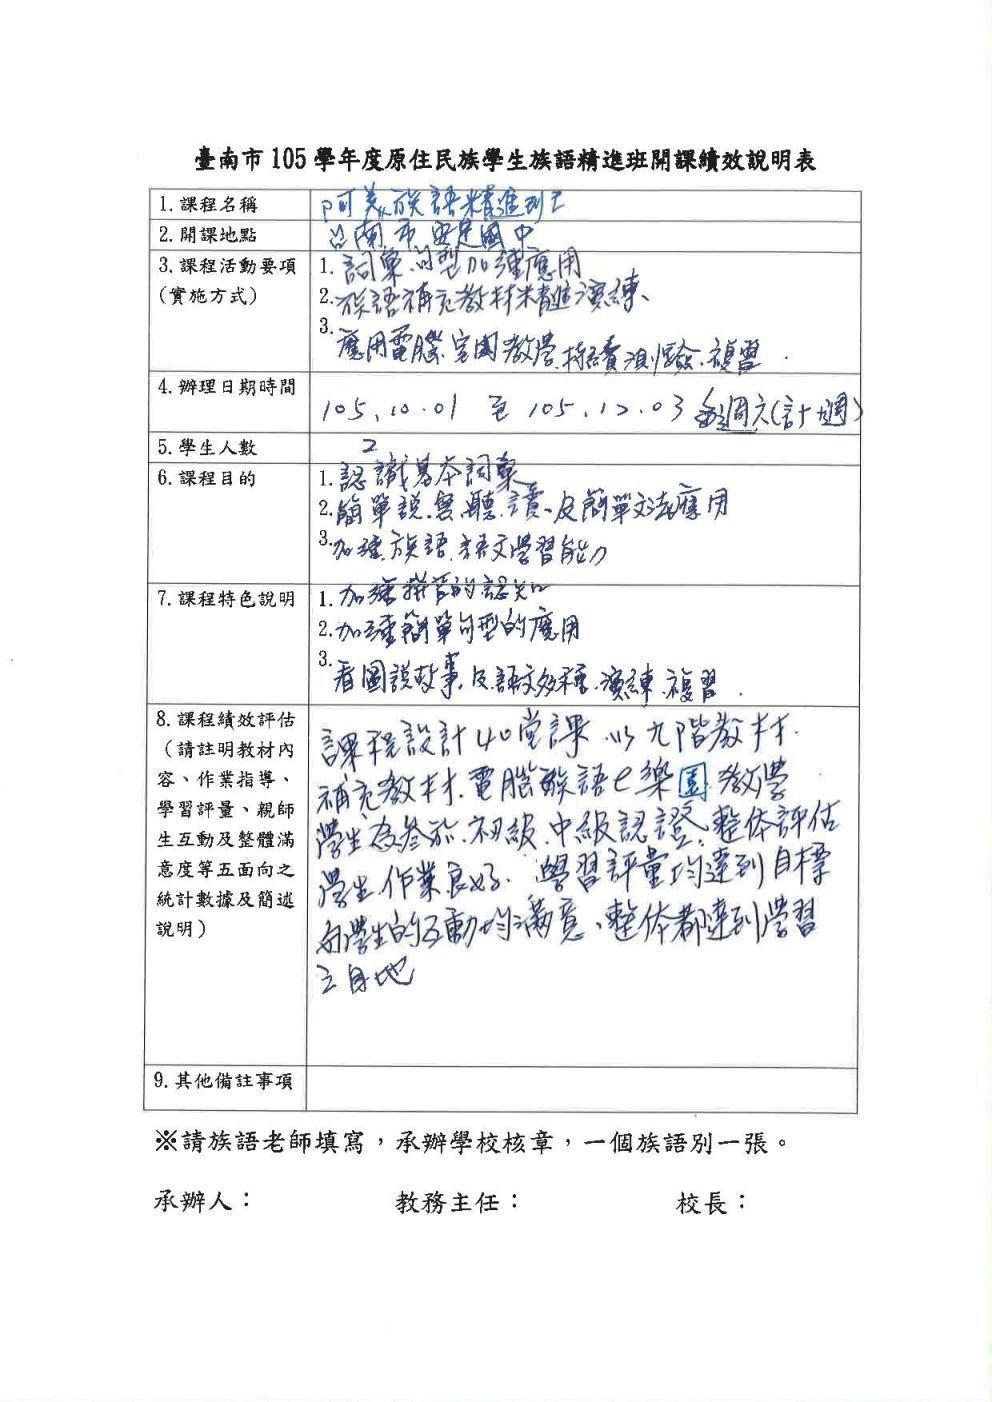 臺南市 105 學年度原住民族學生族語精進班開課績效說明表
1.課程名稱 阿美族語精進班
2.開課地點 台南市安定國中
3.課程活動要項 1.詞彙、句型加強應用
(實施方式) 2.族語補充教材精進演練、
3.應用電腦、室內教學、持續測驗、複習.
4.辦理日期時間
105.10.01 至 105.12.03 每週六(計十週)
5.學生人數 2
6.課程目的 1.認識基本詞彙
2.簡單說、寫、聽、讀、及簡單文法應用
3.加強族語、語文學習能力
7.課程特色說明 1.加強拼音的認知
2.加強簡單句型的應用
3.看圖說故事、及語文多種、演練、複習.
8.課程績效評估 課程設計40堂課、以九階教材.
(請註明教材內
容、作業指導、 補充教材.電腦族語e樂園教學
學習評量、親師
生互動及整體滿 學生為參加.初級.中級認證、整体評估
意度等五面向之
統計數據及簡述 學生作業良好.學習評量均達到目標
說明)
與學生的互動均滿意、整体都達到學習
之目地
9.其他備註事項
※請族語老師填寫,承辦學校核章,一個族語別一張。
承辦人: 教務主任: 校長: